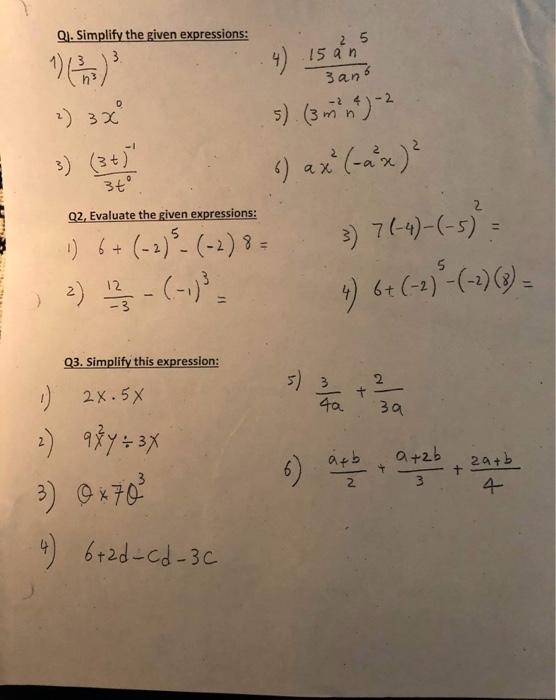 Q1. Simplify the given expressions:
1) (3/n³)³
2) 3x⁰
3) (3t)⁻¹/3t⁰
4) 15a²n⁵/3an⁶
5) (3m⁻²n⁴)⁻²
6) ax²(-a²x)²
Q2, Evaluate the given expressions:
1) 6 + (-2)⁵ - (-2) 8 =
2) 12/-3 - (-1)³ =
3) 7(-4) - (-5)² =
4) 6 + (-2)⁵ - (-2)(8) =
Q3. Simplify this expression:
1) 2x . 5x
2) 9x²y ÷ 3x
3) Q × 7Q³
4) 6 + 2d - cd - 3c
5) 3/4a + 2/3a
6) a+b/2 + a+2b/3 + 2a+b/4